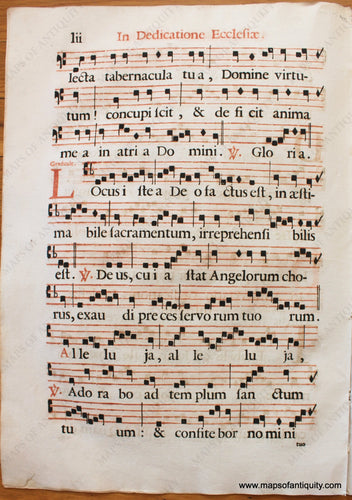 lii In Dedicatione Ecclesiæ.
lecta tabernacula tua, Domine virtu-
tum! concupiscit, & deficit anima
mea in atria Domini. ℣. Gloria.
Graduale.
LOcus iste a Deo factus est, inæsti-
mabile sacramentum, irreprehensibilis
est. ℣. Deus, cui astat Angelorum cho-
rus, exaudi preces servorum tuorum.
Alleluja, alleluja,
℣. Adorabo ad templum sanctum
tuum: & confitebor nomini
tuo
www.mapsofantiquity.com